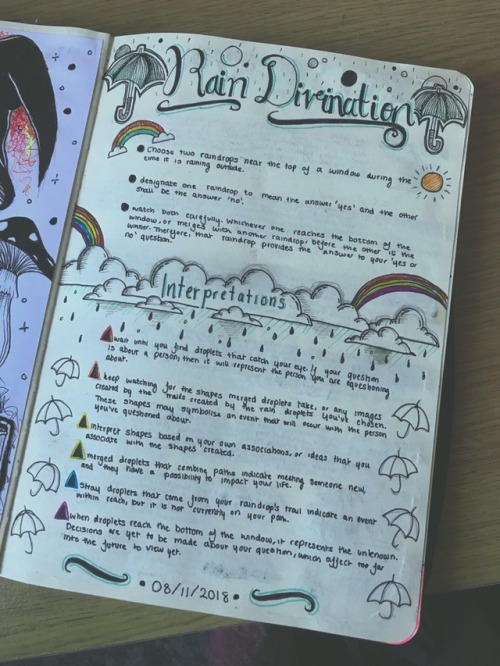 Rain Divination
Choose two raindrops near the top of a window during the
time it is raining outside.
designate one raindrop to mean the answer 'yes' and the other
shall be the answer 'no'.
watch both carefully. Whichever one reaches the bottom of the
window, or merges with another raindrop, before the other is the
winner. Therefore, that raindrop provides the answer to your 'yes or
no' question.
Interpretations
wait until you find droplets that catch your eye. If your question
is about a person, then it will represent the person you are questioning
about.
keep watching for the shapes merged droplets take, or any images
created by the trails created by the rain droplets you've chosen.
These shapes may symbolise an event that will occur with the person
you've questioned about.
interpret shapes based on your own associations, or ideas that you
associate with the shapes created.
merged droplets that combine paths indicate meeting someone new,
and they have a possibility to impact your life.
Stray droplets that come from your raindrop's trail indicate an event
within reach, but it is not currently on your path.
when droplets reach the bottom of the window, it represents the unknown.
Decisions are yet to be made about your question, which affect too far
into the future to view yet.
08/11/2018